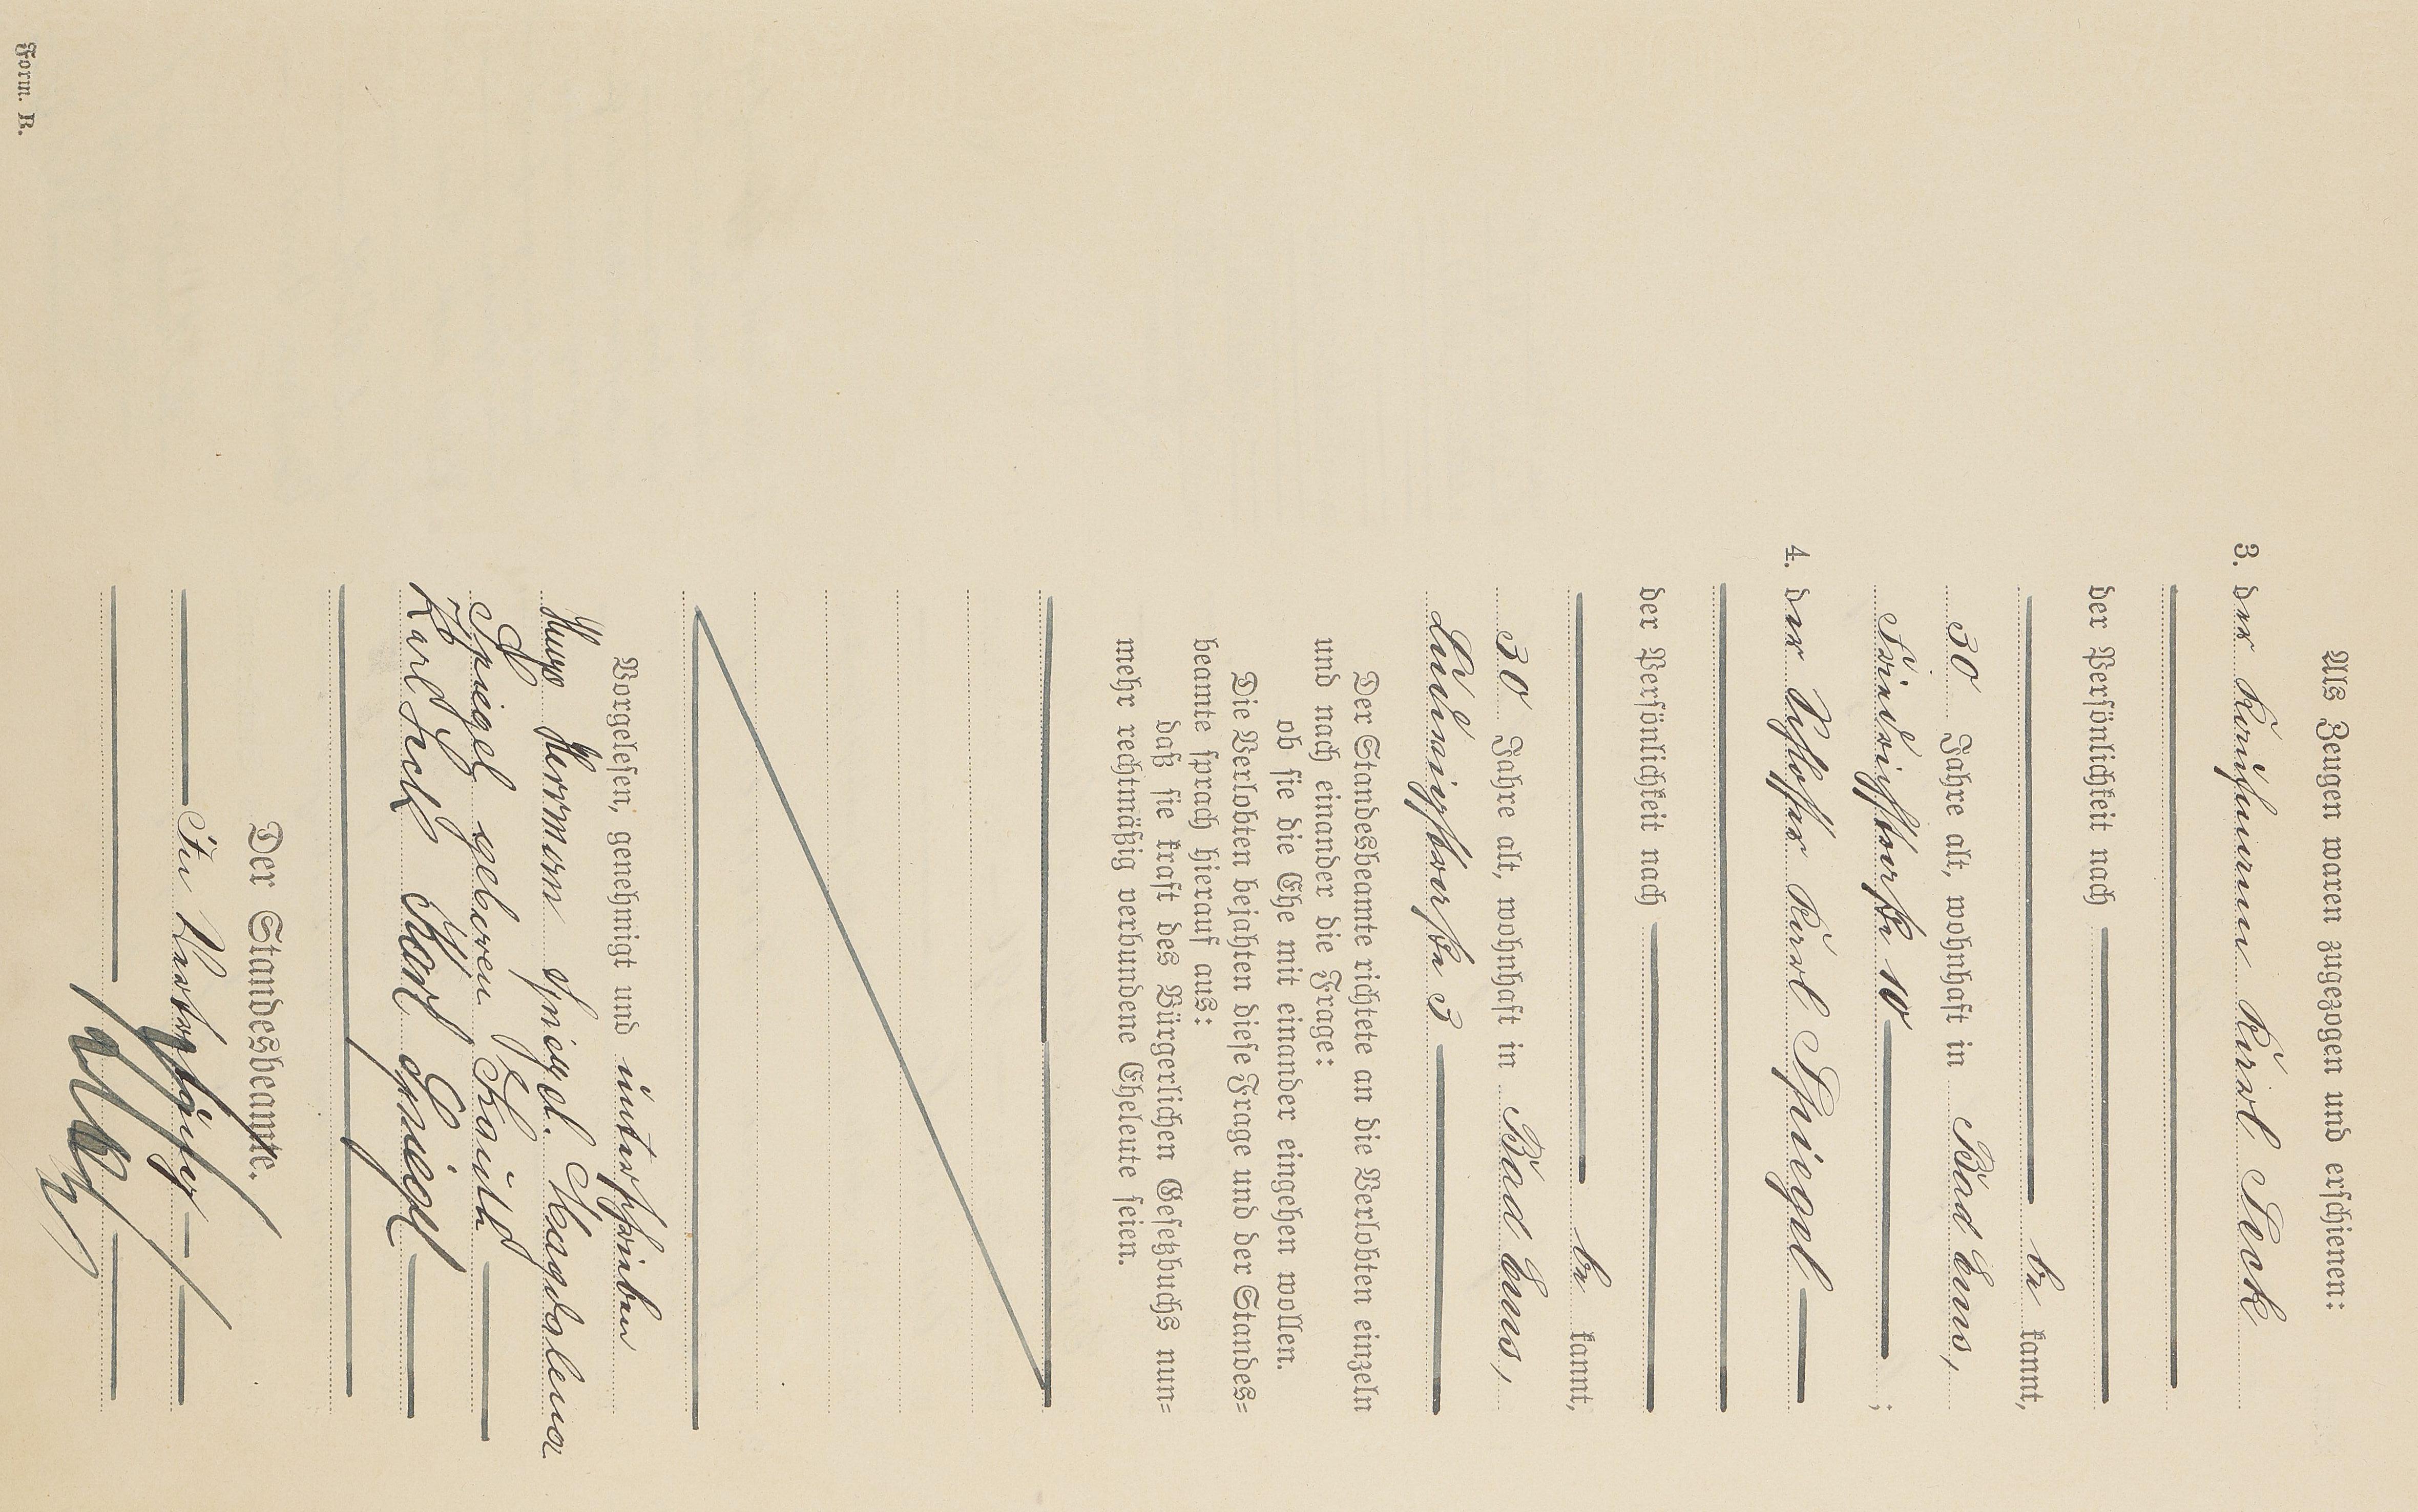 Als Zeugen waren zugezogen und erschienen:
3. der Kaufmann Karl Seck
der Persönlichkeit nach
be kannt,
30 Jahre alt, wohnhaft in Bad Ems,
Friedrichstraße 10 ;
4. der Schlosser Karl Spiegel
der Persönlichkeit nach
be kannt,
30 Jahre alt, wohnhaft in Bad Ems,
Ludwigstraße 3
Der Standesbeamte richtete an die Verlobten einzeln
und nach einander die Frage:
ob sie die Ehe mit einander eingehen wollen.
Die Verlobten bejahten diese Frage und der Standes=
beamte sprach hierauf aus:
daß sie kraft des Bürgerlichen Gesetzbuchs nun=
mehr rechtmäßig verbundene Eheleute seien.
Vorgelesen, genehmigt und unterschrieben
Hugo Hermann Spiegel. Magdalena
Spiegel geboren
Karl Seck Karl Spiegel
Der Standesbeamte.
In Vertretung
Form. B.